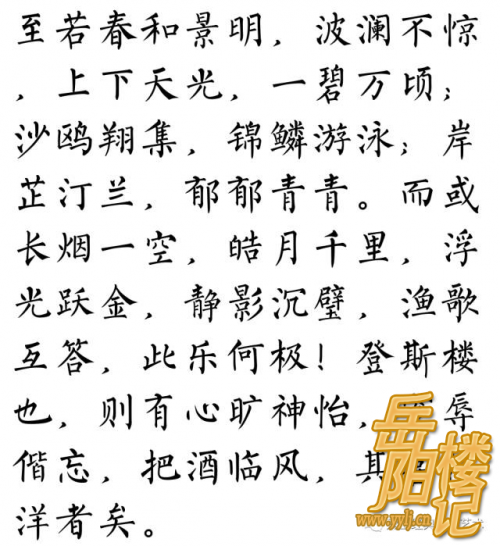 至若春和景明，波澜不惊
，上下天光，一碧万顷；
沙鸥翔集，锦鳞游泳；岸
芷汀兰，郁郁青青。而或
长烟一空，皓月千里，浮
光跃金，静影沉璧，渔歌
互答，此乐何极！登斯楼
也，则有心旷神怡，辱
偕忘，把酒临风，其
洋者矣。
岳阳楼记
www.yylj.cn